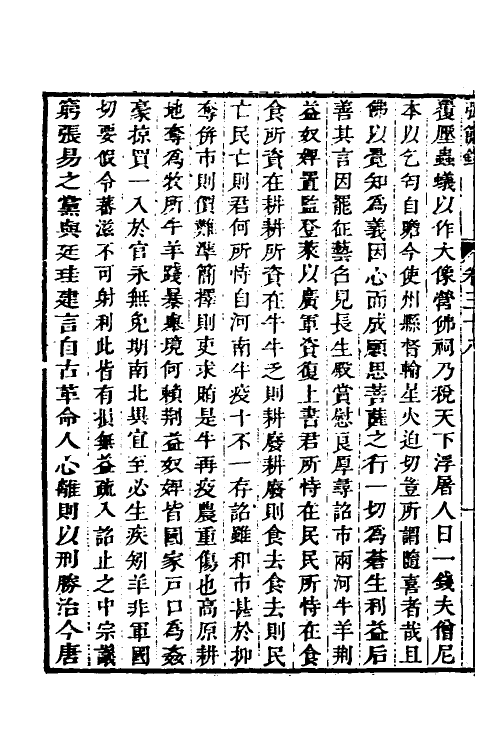 卷三十八
覆壓蟲蟻以作大像營佛祠乃稅天下浮屠人日一錢夫僧尼
本以乞匄自贍今使州縣督輸星火迫切豈所謂隨喜者哉且
佛以覺知為義因心而成願思菩薩之行一切為蒼生利益后
善其言因罷征藝召見長生殿賞慰良厚尋詔市兩河牛羊荆
益奴婢置監登萊以廣軍資復上書君所恃在民民所恃在食
食所資在耕耕所資在牛牛乏則耕廢耕廢則食去食去則民
亡民亡則君何所恃自河南牛疫十不一存詔雖和市甚於抑
奪併市則價難準簡擇則吏求賄是牛再疫農重傷也高原耕
地奪為牧所牛羊踐暴境何賴荆益奴婢皆國家戶口為姦
豪掠買一入於官永無免期南北異宜至必生疾矧羊非軍國
切要假令蕃滋不可射利此皆有損無益疏入詔止之中宗議
窮張易之黨與廷珪建言自古革命人心離則以刑勝治今唐